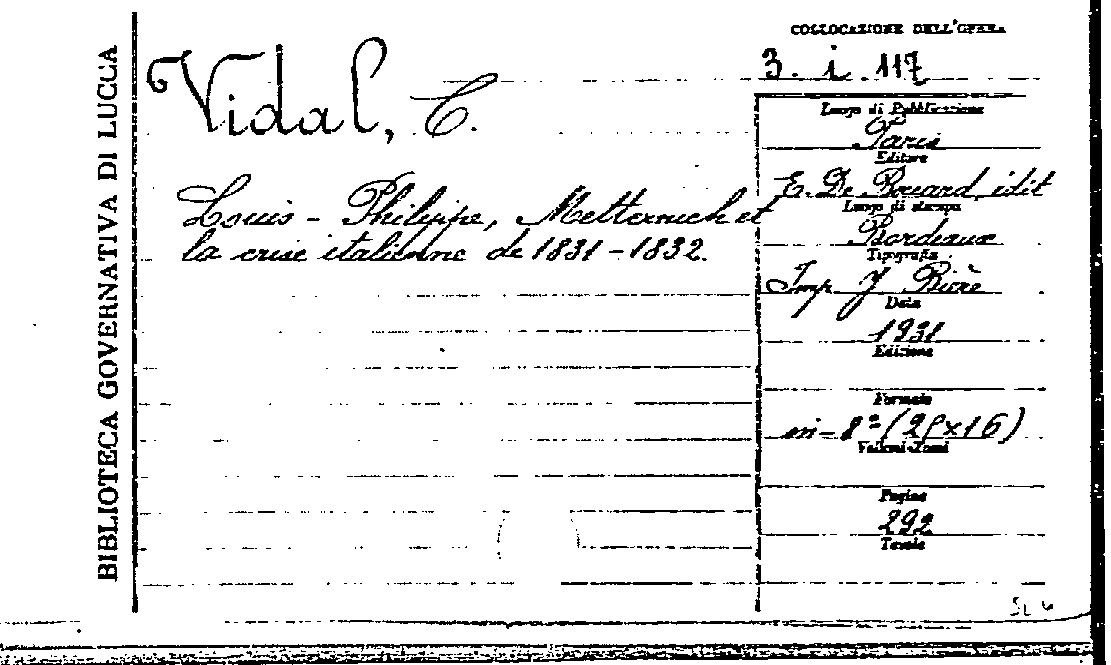 BIBLIOTECA GOVERNATIVA DI LUCCA
Vidal, C.
Louis - Philippe, Metternich et
la crise italienne de 1831 - 1832.
COLLOCAZIONE DELL'OPERA
3. i. 117
Luogo di Pubblicazione
Paris
Editore
E. De Boccard, idit
Luogo di stampa
Bordeaux
Tipografia
Imp. J Bière
Data
1931
Edizione
Formato
in-8º (25×16)
Volumi-Tomi
Pagine
292
Tavole